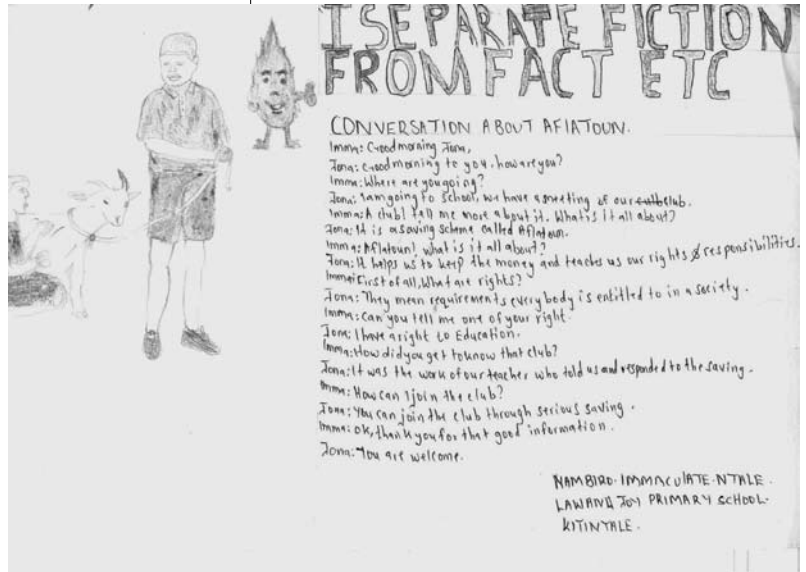 I SEPARATE FICTION
FROM FACT ETC
CONVERSATION ABOUT AFLATOUN.
Imma: Good morning Jona,
Jona: Good morning to you, how are you?
Imma: Where are you going?
Jona: I am going to school, we have a meeting of our club.
Imma: A club! tell me more about it. What is it all about?
Jona: It is a saving scheme called Aflatoun.
Imma: Aflatoun! what is it all about?
Jona: It helps us to keep the money and teaches us our rights & responsibilities.
Imma: First of all, What are rights?
Jona: They mean requirements everybody is entitled to in a society.
Imma: Can you tell me one of your right.
Jona: I have a right to Education.
Imma: How did you get to know that club?
Jona: It was the work of our teacher who told us and responded to the saving.
Imma: How can I join the club?
Jona: You can join the club through serious saving.
Imma: Ok, thank you for that good information.
Jona: You are welcome.
NAMBIRO. IMMACULATE. NTALE.
LAWANG JOY PRIMARY SCHOOL.
KITINTALE.